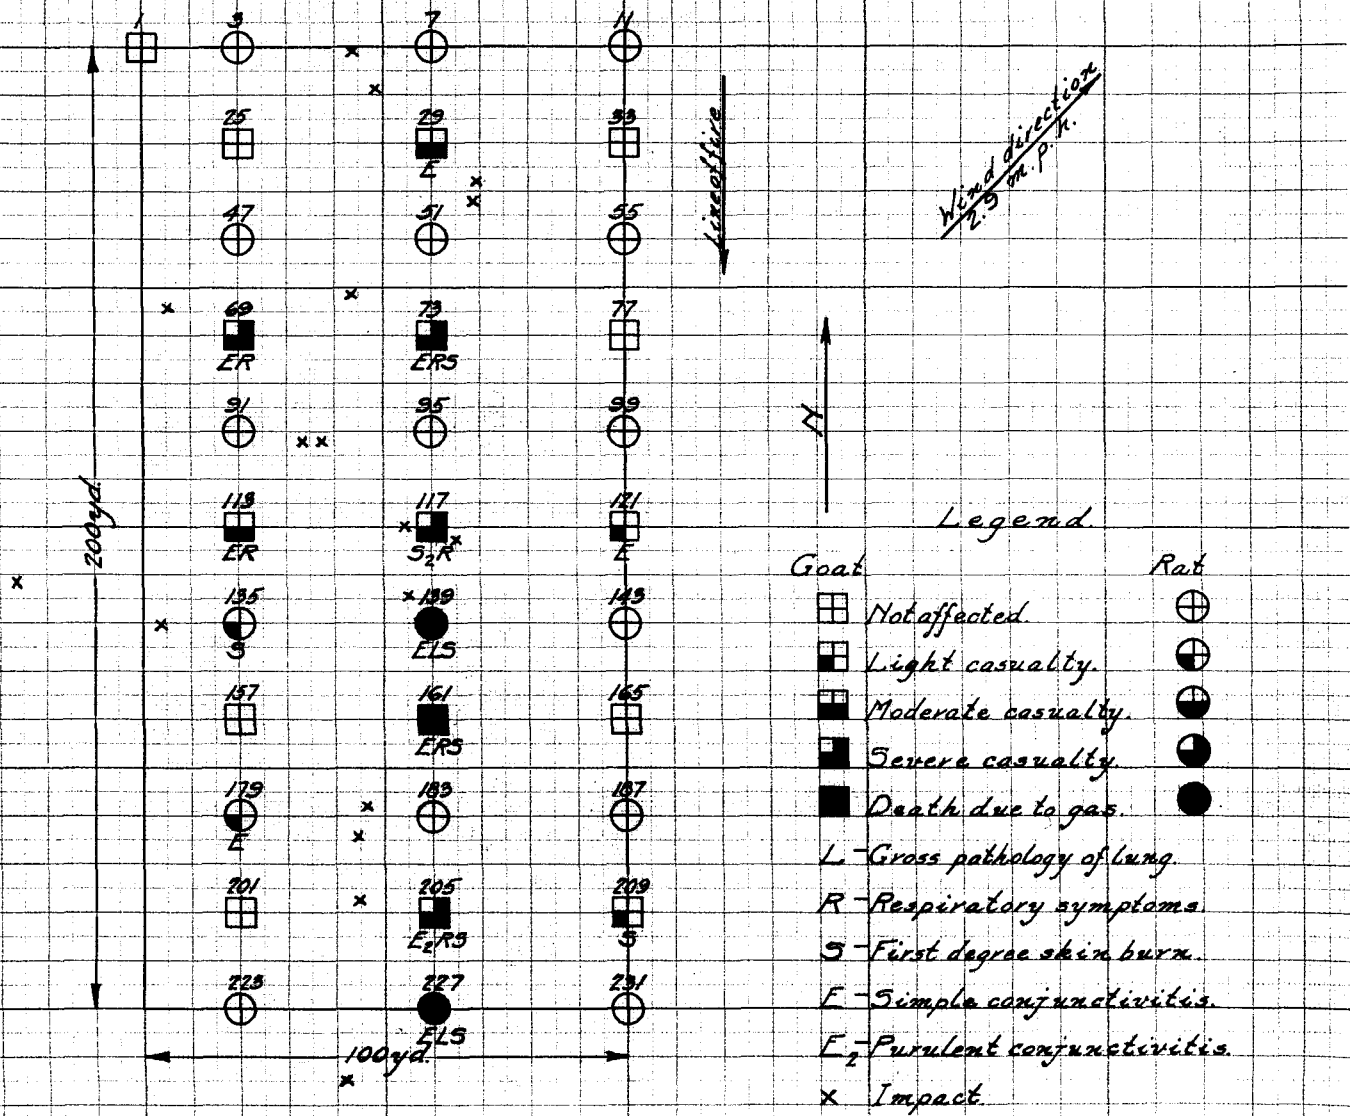 1 3 7 11
25 29 33
E
47 51 55
Line of fire
Wind direction
2.9 m.p.h.
69 73 77
ER ERS
91 95 99
N
200yd.
113 117 121
ER S₂R E
135 139 143
S ELS
157 161 165
ERS
179 183 187
E
201 205 209
E₂RS S
223 227 231
ELS
100yd.
Legend
Goat Rat
Not affected.
Light casualty.
Moderate casualty.
Severe casualty.
Death due to gas.
L - Gross pathology of lung.
R - Respiratory symptoms.
S - First degree skin burn.
E - Simple conjunctivitis.
E₂ - Purulent conjunctivitis.
x Impact